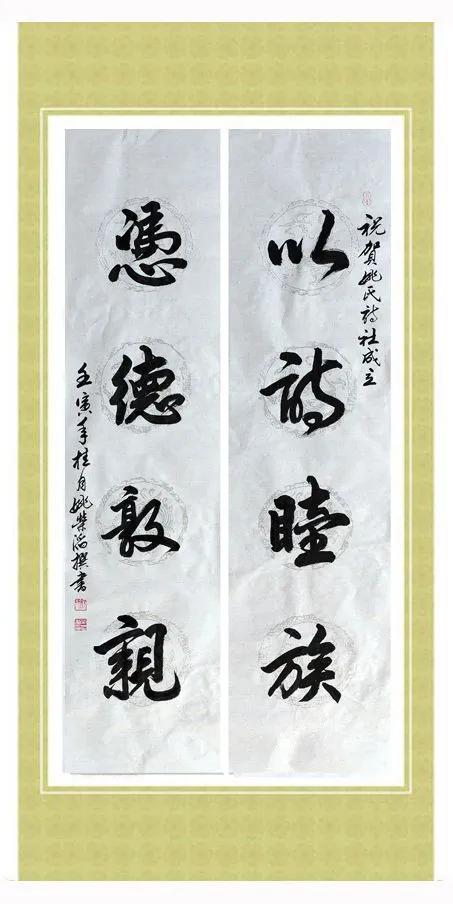 祝賀姚氏詩社成立
以詩睦族
憑德敦親
壬寅年桂月姚榮滔撰書